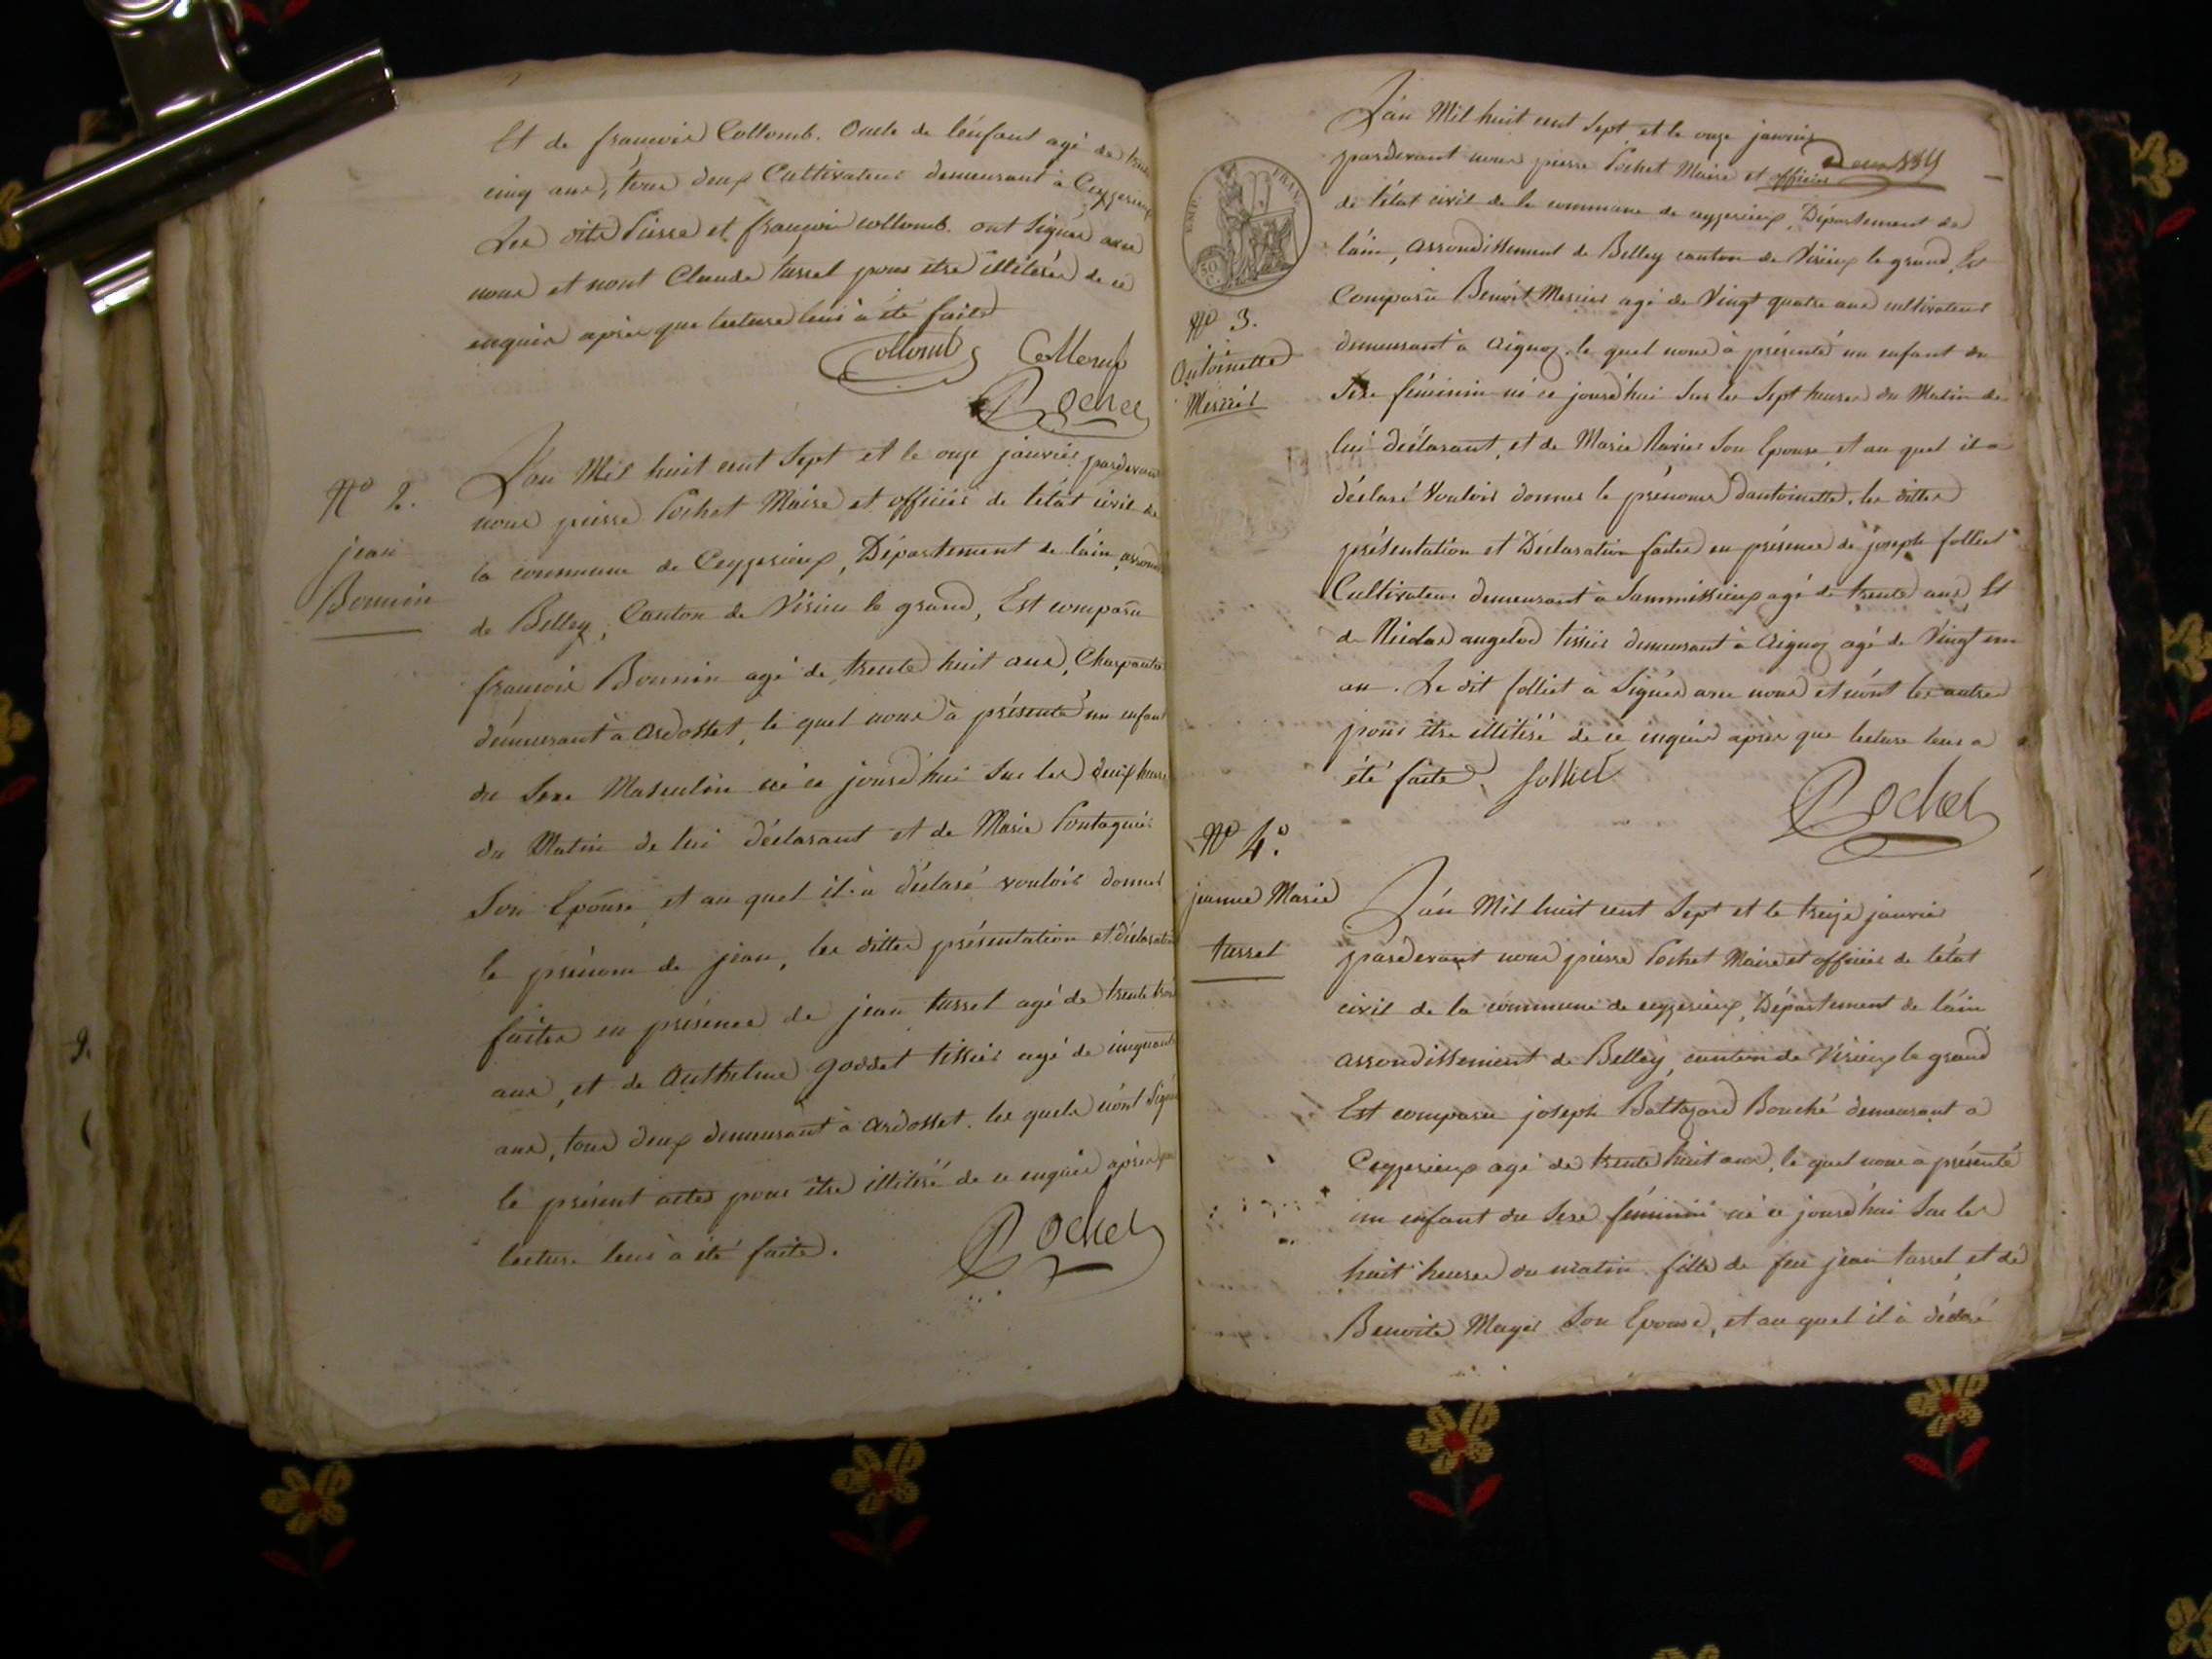 Et de françois Collomb. Oncle de l'énfant agé de trente
cinq ans, tous deux Cultivateurs demeurant à Ceyzerieux
Les dits Pierre et françois collomb. ont Signés avec
nous et nont Claude tarrel pour être illitérés de ce
enquis après que lecture leur à été faite
Collomb Collomb
Pochet
N° 2.
jean
Bonnin
L'an Mil huit cent Sept et le onze janvier pardevant
nous pierre Pochet Maire et officier de l'état civil de
la commune de Ceyzerieux, Département de lain, arrond
de Belley, Canton de Virieu le grand, Est comparu
françois Bonnin agé de trente huit ans, Charpentier
démeurant à Ardosset, le quel nous à présenté un enfant
du Sexe Masculin né ce jourd'hui Sur les deux heures
du Matin de lui déclarant et de Marie Pontagnier
Son Epouse, et au quel il à déclaré vouloir donner
le prénom de jean, les dittes présentation et déclaration
faites en présence de jean tarrel agé de trente trois
ans, et de Anthelme goddet tissier agé de cinquante
ans, tous deux demeurant à Ardosset. les quels n'ont Signé
le présent actes pour être illitéré de ce enquis après que
lecture leur à été faite.
Pochet
EMP. FRAN.
50 C.
N° 3.
Antoinette
Mercier
L'an Mil huit cent Sept et le onze janvier
pardevant nous pierre Pochet Maire et officier
de l'état civil de la commune de ceyzerieux, Département de
lain, arrondissement de Belley canton de Virieux le grand, Est
Comparu Benoit Mercier agé de Vingt quatre ans cultivateur
demeurant à Aignoz, le quel nous à présenté un enfant du
Sexe féminin né ce jourd'hui Sur les Sept heures du Matin de
lui déclarant, et de Marie Ravier Son Epouse, et au quel il a
déclaré Vouloir donner le prénoms d'antoinette, les dittes
présentation et Déclaration faites en présence de joseph folliet
Cultivateur demeurant à Sammissieux agé de trente ans, Et
de Nicolas angelod tissier demeurant à Aignoz agé de Vingt un
an. Le dit folliet à Signés avec nous et n'ont les autres
pour être illitéré de ce enquis après que lecture leur a
été faite. folliet
Pochet
N° 4.
jeanne Marie
tarrel
L'an Mil huit cent Sept et le treize janvier
pardevant nous pierre Pochet Maire et officier de l'état
civil de la commune de ceyzerieux, Département de lain
arrondissement de Belley, canton de Virieux le grand
Est comparu joseph Baltazard Bouché demeurant a
Ceyzerieux agé de trente huit ans, le quel nous a présenté
un enfant du Sexe féminin né ce jourd'hui Sur les
huit heures du matin fille de feu jean tarrel et de
Benoite Mayer Son Epouse, et au quel il à déclaré